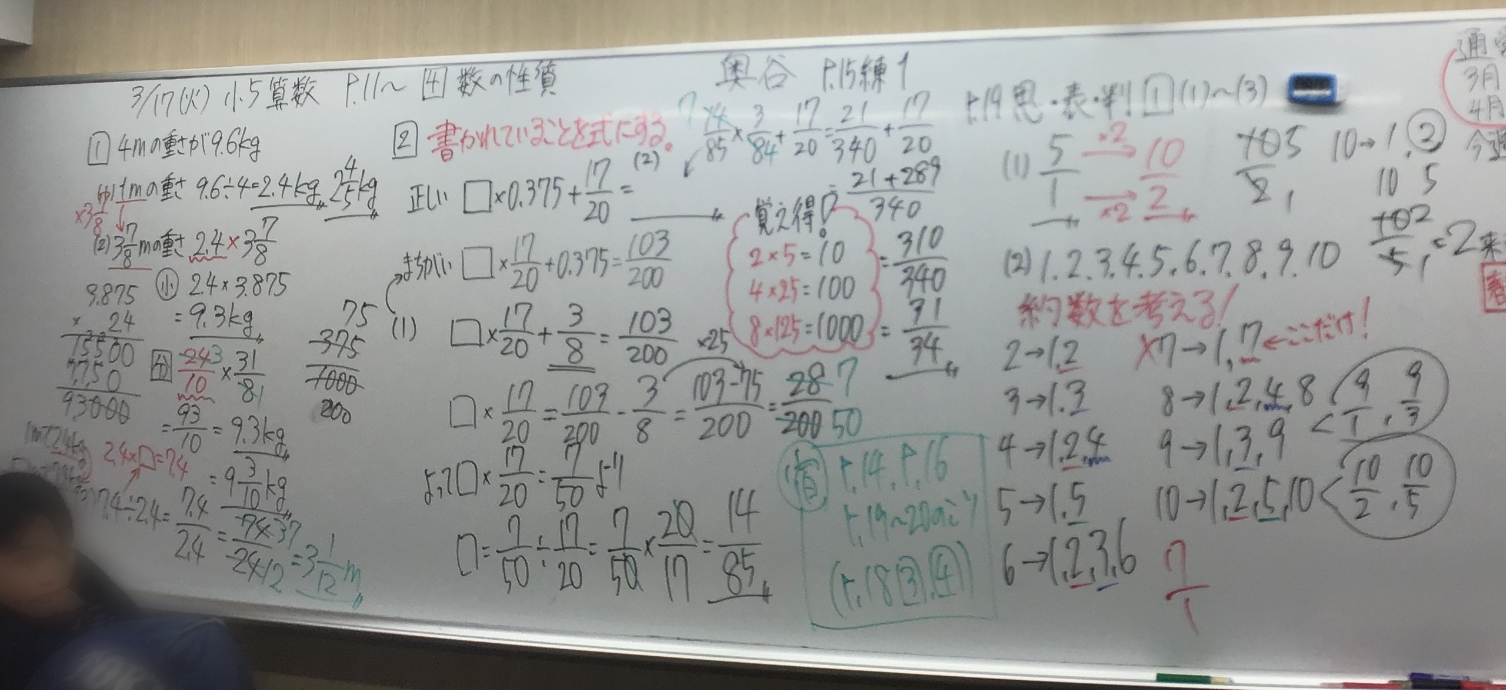 3/17(火) 小5算数 P.11〜 4 数の性質
奥谷 P.15練1
1 4mの重さが9.6kg
(1) 1mの重さ 9.6÷4=2.4kg 2 4/5kg
×3 7/8
(2) 3 7/8mの重さ 2.4×3 7/8
小 2.4×3.875
=9.3kg
9.875
×24
15500
7750
93000
分 24/10×31/8
3
1
=93/10=9.3kg
=9 3/10kg
2.4×□=7.4
7.4÷2.4=7.4/2.4=74/24 37/12=3 1/12m
75
375
1000
200
2 書かれていることを式にする。
正しい □×0.375+17/20=(2)
まちがい □×17/20+0.375=103/200
(1) □×17/20+3/8=103/200
×25
□×17/20=103/200-3/8=103-75/200=28/200 7/50
よって□×17/20=7/50より
□=7/50÷17/20=7/50×20/17=14/85
7
14/85×3/84+17/20=21/340+17/20
=21+289/340
=310/340
=31/34
覚え得!
2×5=10
4×25=100
8×125=1000
宿 P.14,P.16
P.19〜20のこり
(P.18 3,4)
P.19思・表・判 1 (1)〜(3)
(1) 5/1 ×2 → 10/2
×2
10 5/2 1
10→1,2
10 5
10 2/5 1=2
(2) 1.2.3.4.5.6.7.8.9.10
約数を考える!
2→1,2
3→1.3
4→1,2,4
5→1.5
6→1,2,3,6
×7→1,7←ここだけ!
8→1,2,4,8
9→1,3,9<9/1,9/3
10→1,2,5,10<10/2,10/5
7/1
3月
4月